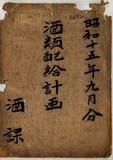 昭和十五年九月分
酒類配給計画
酒課